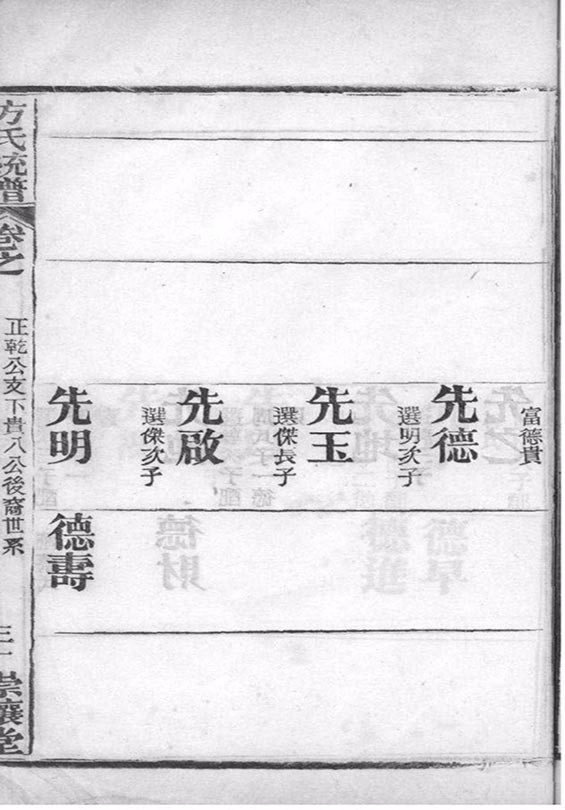 富德貴
先德
選明次子
先玉
選傑長子
先啟
選傑次子
先明
德壽
方氏統譜
卷之
正乾公支下貴八公後裔世系
三十
崇讓堂